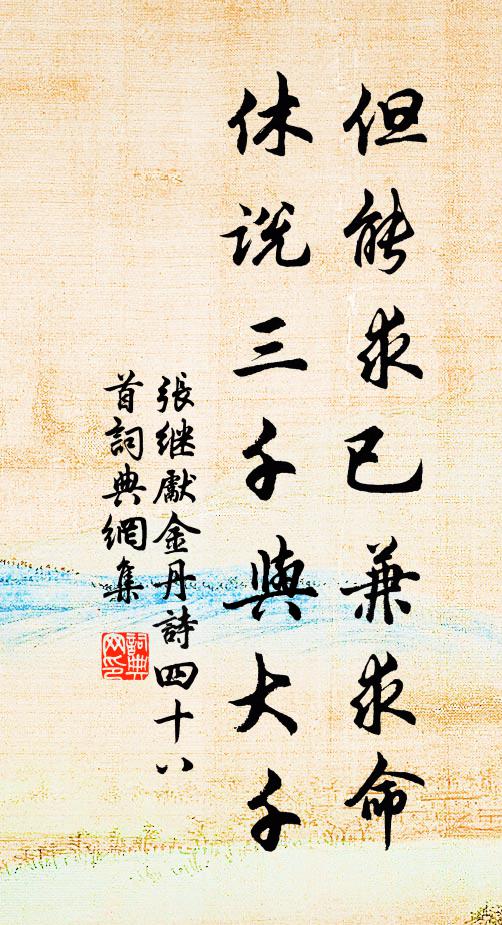 但能求已兼求命
休说三千與大千
張继獻金丹詩四十八
首詞典網集
詞典网印